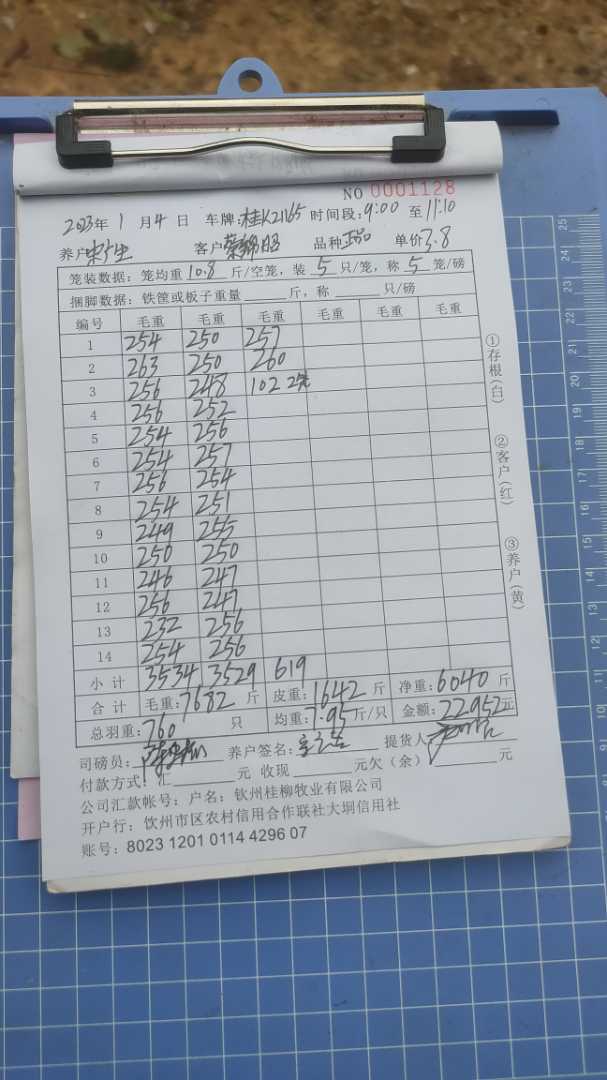 NO 0001128
2023年 1 月 4 日 车牌:桂K21165 时间段:9:00 至 11:10
养户 客户 品种 正品 单价 3.8
笼装数据: 笼均重 10.8 斤/空笼, 装 5 只/笼, 称 5 笼/磅
捆脚数据: 铁筐或板子重量 斤, 称 只/磅
编号 毛重 毛重 毛重 毛重 毛重 毛重
1 254 250 257
2 263 250 260
3 256 248 102 2笼
4 256 252
5 254 256
6 254 257
7 256 254
8 254 251
9 249 255
10 250 250
11 246 247
12 256 247
13 232 256
14 254 256
小 计 3534 3529 619
合 计 毛重:7682 斤 皮重:1642 斤 净重:6040 斤
总羽重:760 只 均重:7.95 斤/只 金额:22952元
司磅员: 养户签名: 提货人
付款方式: 汇 元 收现 元欠(余) 元
公司汇款帐号: 户名: 钦州桂柳牧业有限公司
开户行: 钦州市区农村信用合作联社大垌信用社
账号: 8023 1201 0114 4296 07
①存根(白)
②客户(红)
③养户(黄)
25
24
23
22
21
20
19
18
17
16
15
14
13
12
11
10
9